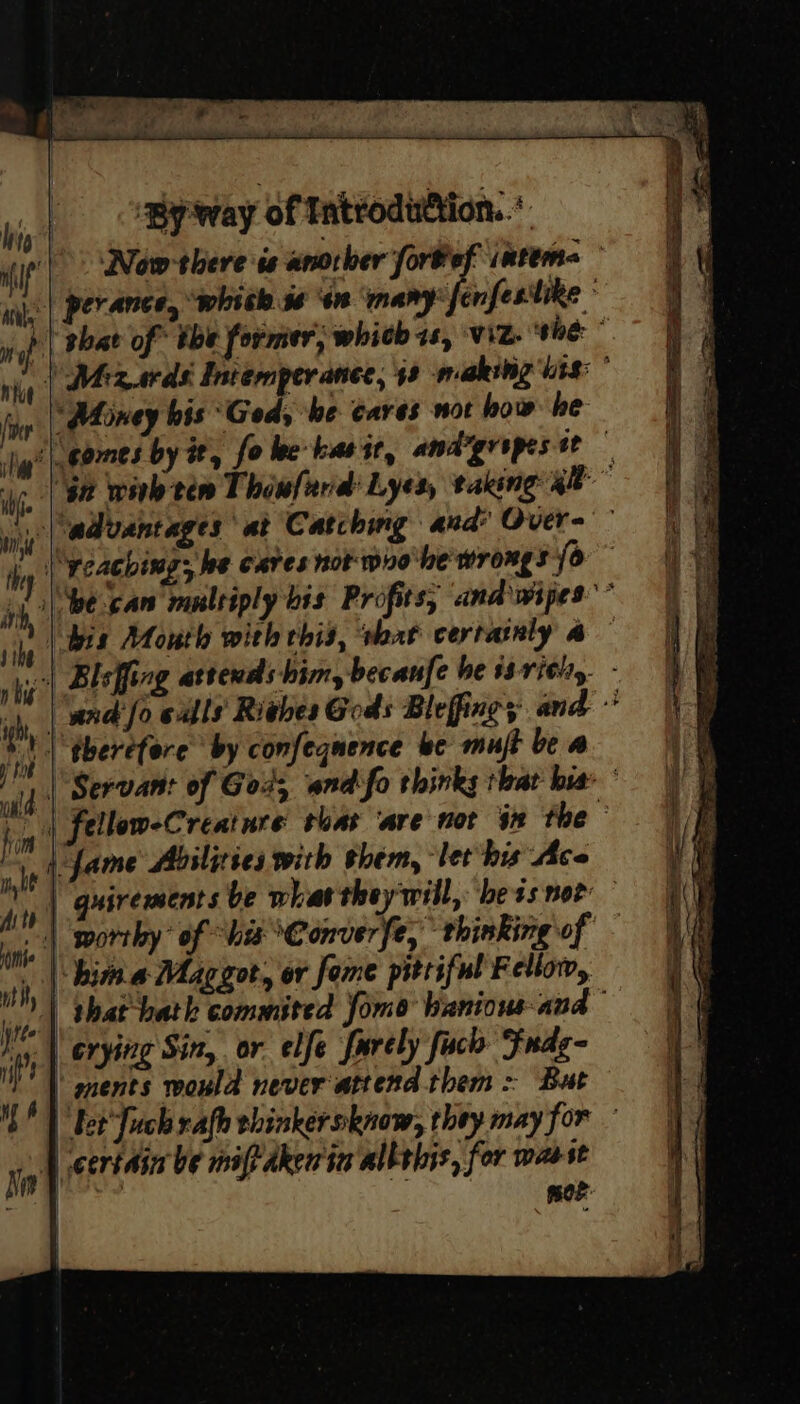 By way of Introduction.
Now there is another sort of intem-
perance, which is in many senses like
that of the former, which is, viz. the
Mizards Intemperance, is making his
Money his God, he cares not how he
comes by it, so he has it, and gripes it
in with ten Thousand Lyes, taking all
advantages at Catching and Over-
reaching; he cares not who he wrongs so
he can multiply his Profits; and wipes
his Mouth with this, that certainly a
Blessing attends him, because he is rich,
and so calls Riches Gods Blessings and
therefore by consequence he must be a
Servant of Gods, and so thinks that his
fellow-Creature that are not in the
same Abilities with them, let his Ac-
quirements be what they will, he is not
worthy of his Converse, thinking of
him a Maggot, or some pittiful Fellow,
that hath commited some hanious and
crying Sin, or else surely such Judg-
ments would never attend them: But
let such rash thinkers know, they may for
certain be mistaken in all this, for was it
not